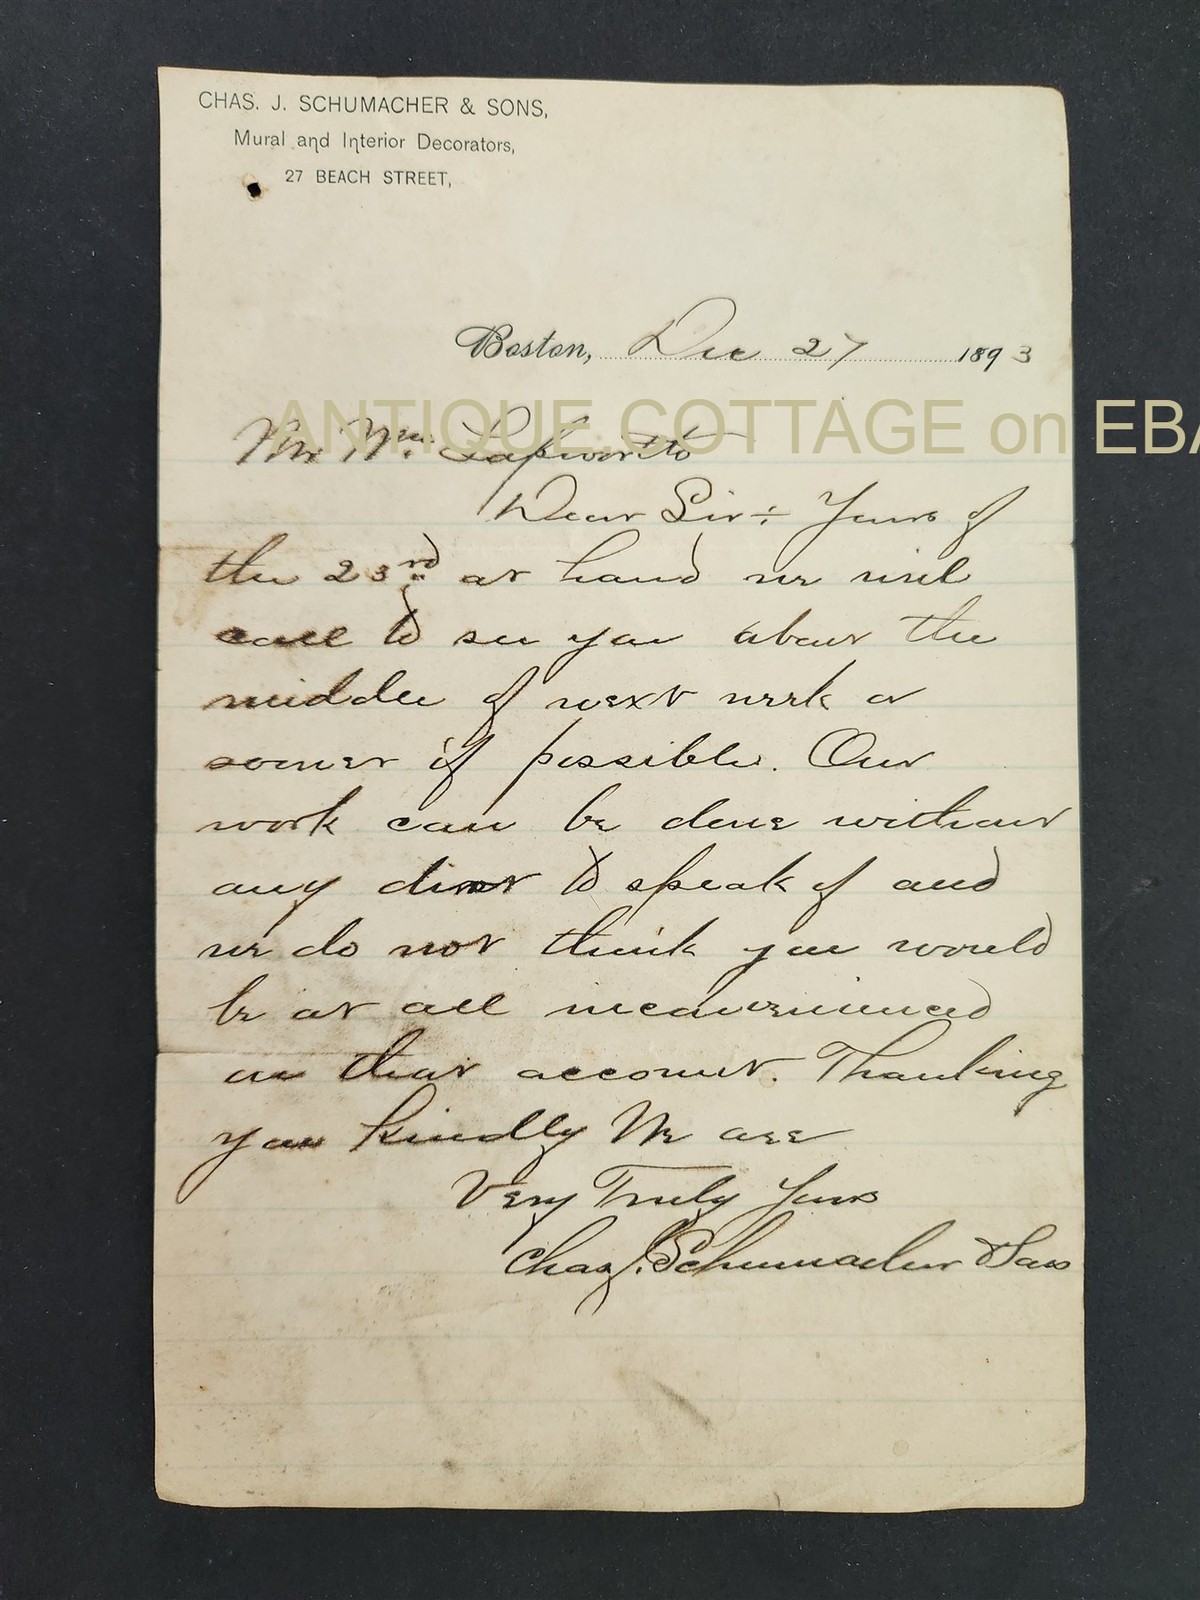 CHAS. J. SCHUMACHER & SONS,
Mural and Interior Decorators,
27 BEACH STREET,
Boston, Dec 27 1893
ANTIQUE COTTAGE on EBA
Mr Wm. Lapworth
Dear Sir:- Yours of
the 23rd at hand we will
call to see you about the
middle of next week or
sooner if possible. Our
work can be done without
any dirt to speak of and
we do not think you would
be at all inconvenienced
on that account. Thanking
you kindly We are
Very Truly Yours
Chas J. Schumacher & Sons